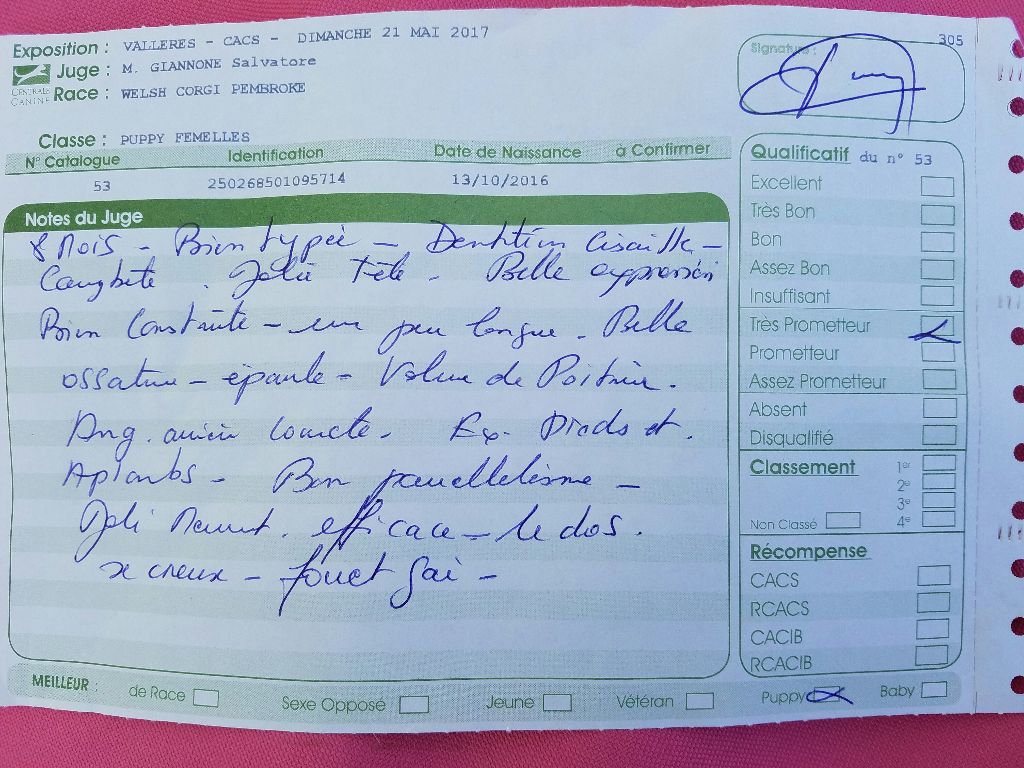 Exposition : VALLERES - CACS - DIMANCHE 21 MAI 2017
Juge : M. GIANNONE Salvatore
CENTRALE CANINE
Race : WELSH CORGI PEMBROKE
305
Signature :
Classe : PUPPY FEMELLES
N° Catalogue Identification Date de Naissance à Confirmer
53 250268501095714 13/10/2016
Notes du Juge
8 Mois - Bien typée - Dentition Cisaille -
Complète . Jolie Tête - Belle expression
Bien Construite - un peu longue . Belle
ossature - épaule - Volume de Poitrine .
Ang. arrière correcte - Ex. Pieds et .
Aplombs - Bon parallelisme -
Joli Mouvt. efficace - le dos .
se creux - fouet gai -
Qualificatif du n° 53
Excellent
Très Bon
Bon
Assez Bon
Insuffisant
Très Prometteur
Prometteur
Assez Prometteur
Absent
Disqualifié
Classement 1er
2e
3e
Non Classé 4e
Récompense
CACS
RCACS
CACIB
RCACIB
MEILLEUR : de Race Sexe Opposé Jeune Vétéran Puppy Baby